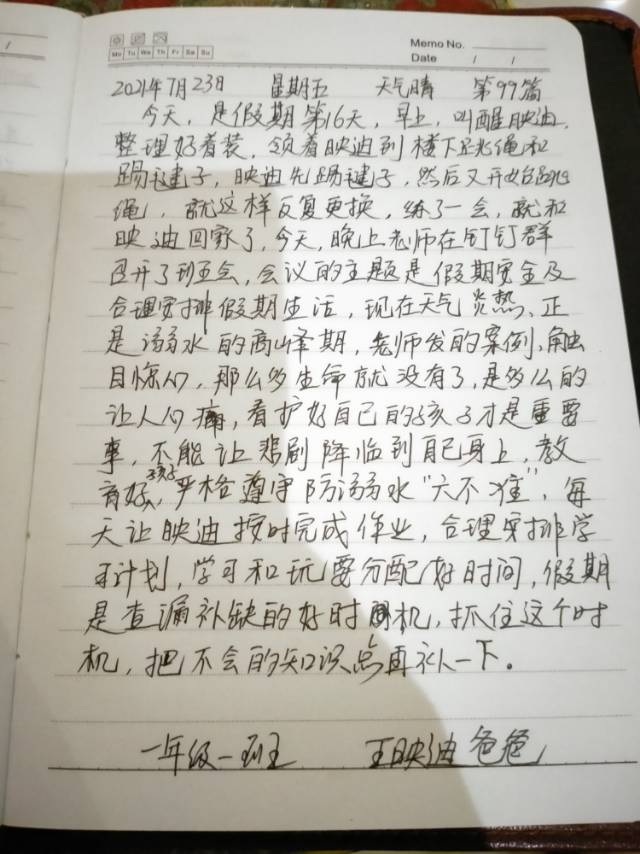 Memo No.
Mo Tu We Th Fr Sa Su
Date / /
2021年7月23日 星期五 天气晴 第99篇
今天，是假期第16天，早上，叫醒映迪，
整理好着装，领着映迪到楼下跳绳和
踢毽子，映迪先踢毽子，然后又开始跳
绳，就这样反复更换，练了一会，就和
映迪回家了，今天，晚上老师在钉钉群
召开了班会，会议的主题是假期安全及
合理安排假期生活，现在天气炎热、正
是溺水的高峰期，老师发的案例、触
目惊心，那么多生命就没有了，是多么的
让人心痛，看护好自己的孩子才是重要
事，不能让悲剧降临到自己身上，教
育好孩子，严格遵守防溺水“六不准”，每
天让映迪按时完成作业，合理安排学
习计划，学习和玩要分配好时间，假期
是查漏补缺的好时机，抓住这个时
机，把不会的知识点再补一下。
一年级一班 王映迪爸爸